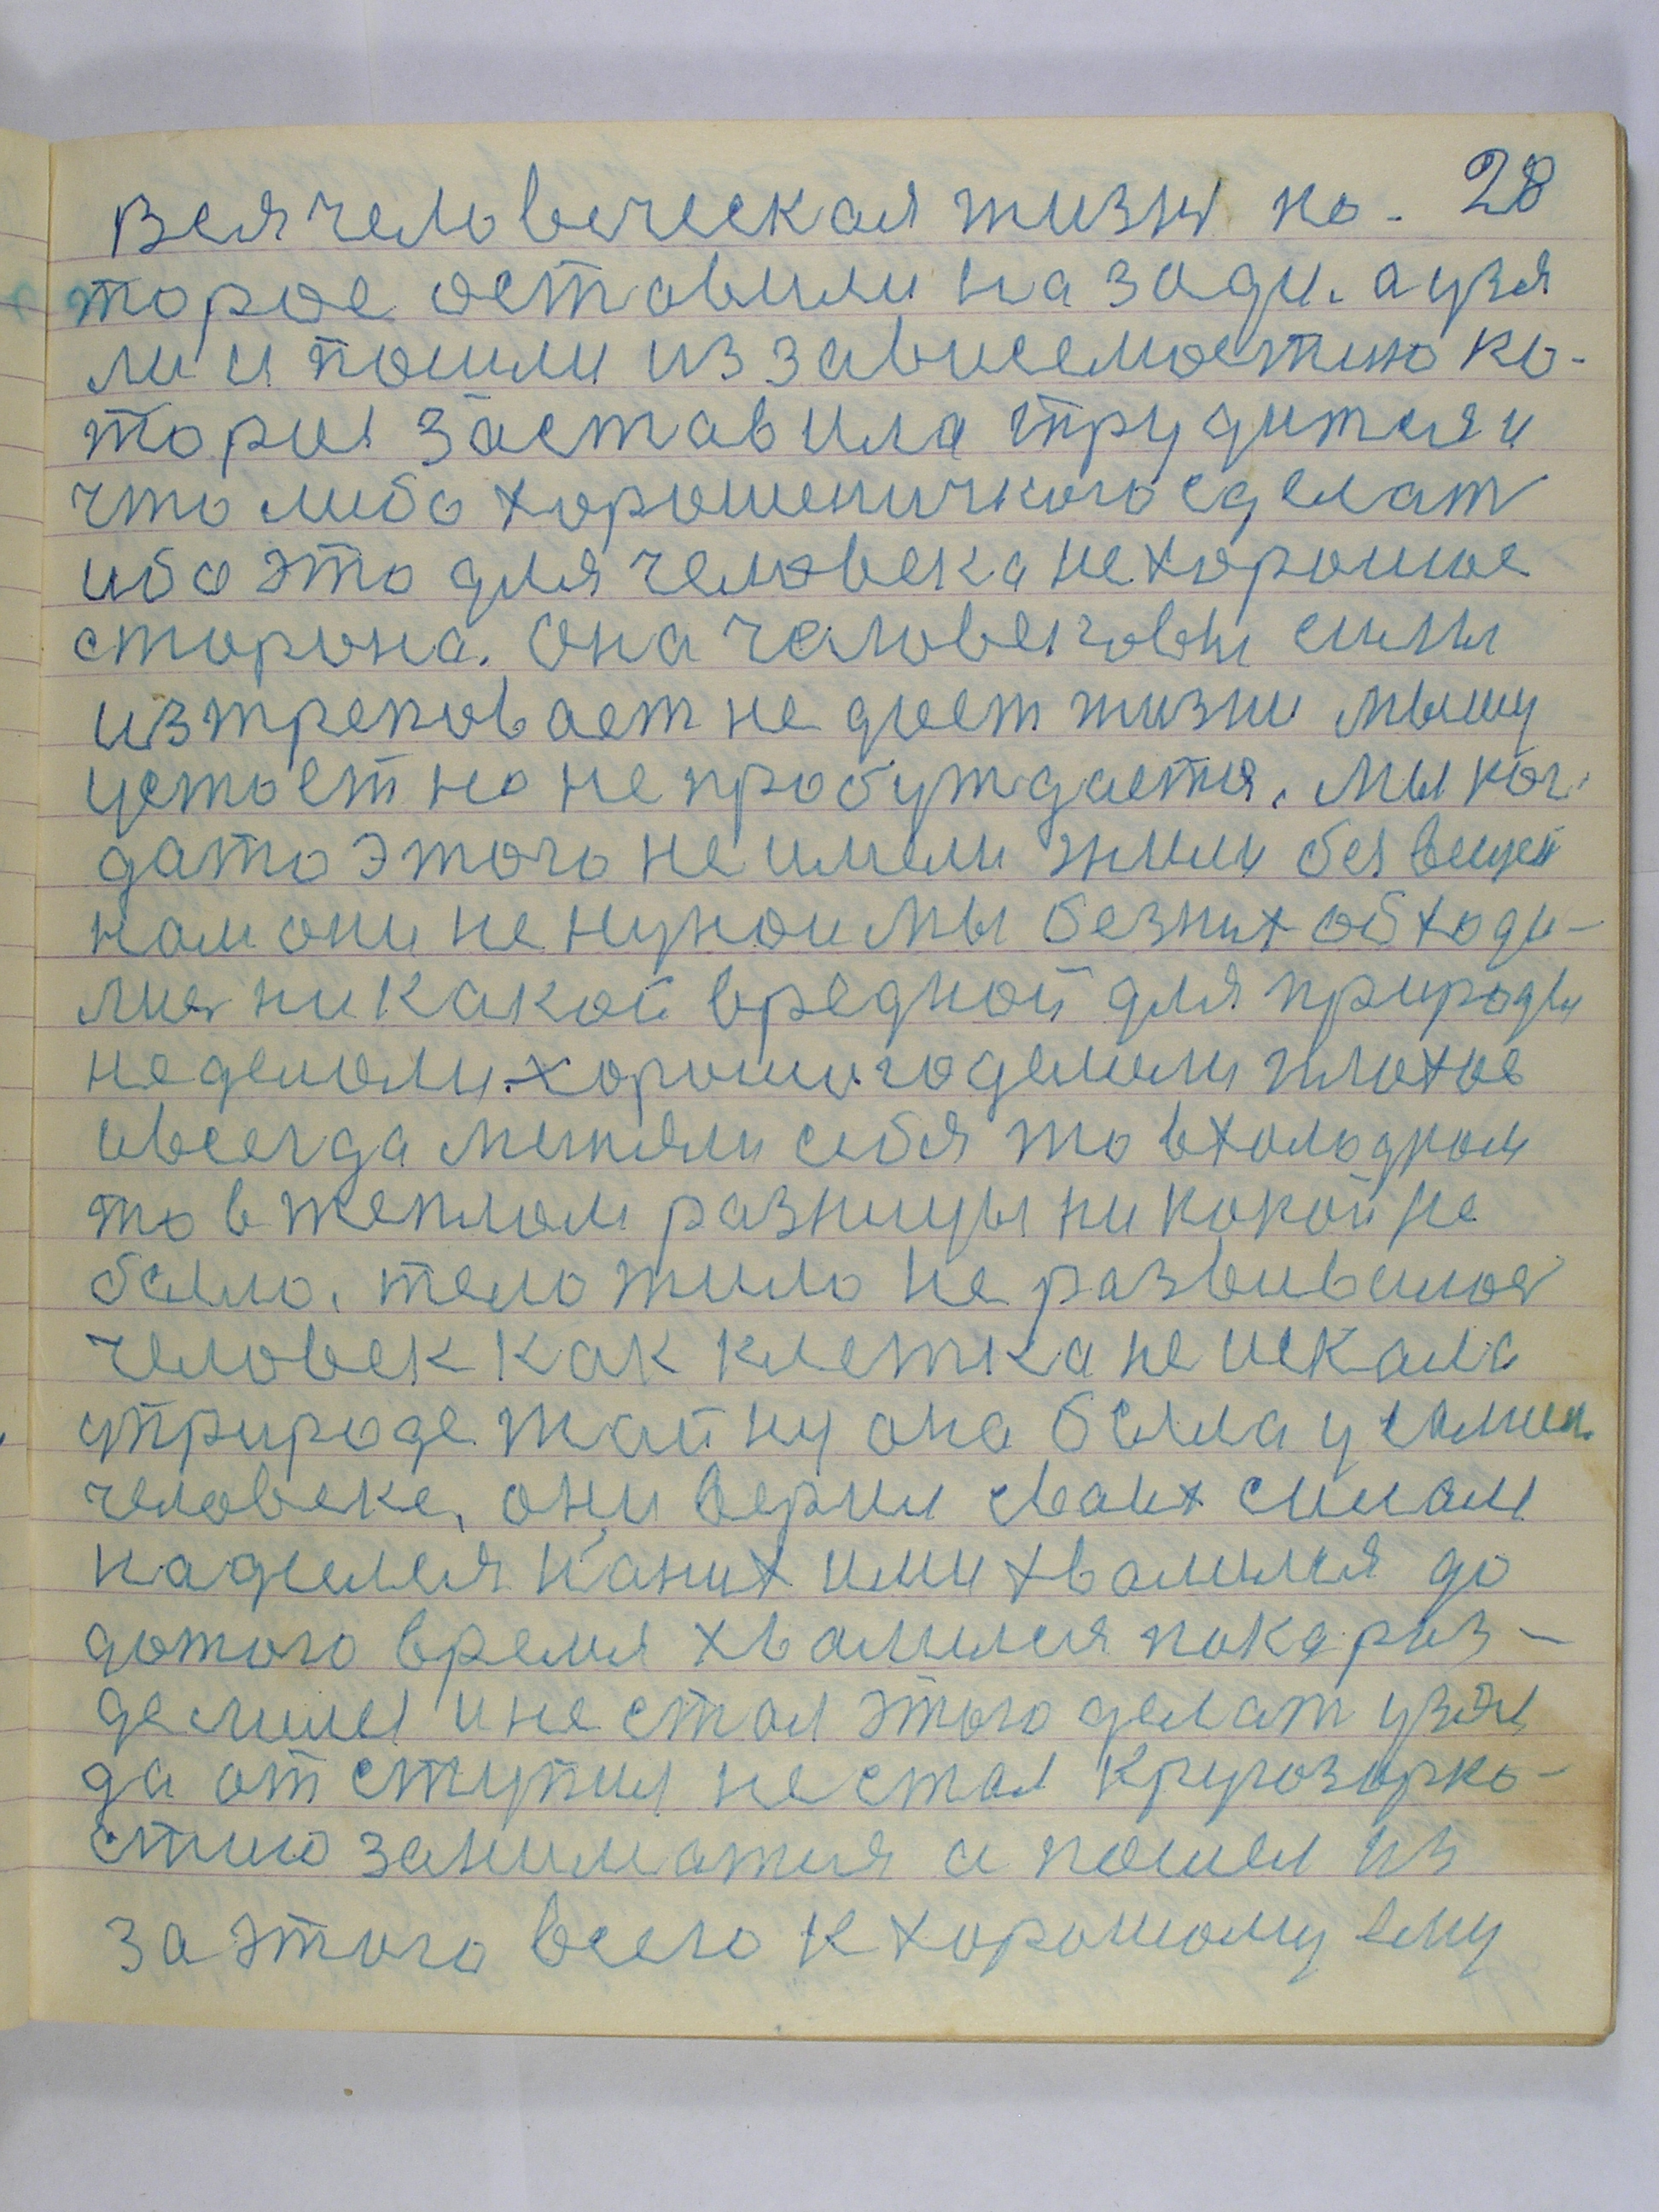 28
Вся человеческая жизнь ко-
торое оставили на зади. а узя
ли и пошли из зависемостию ко-
торыя заставила трудится и
что либо хорошеничкого сделат
ибо это для человека не хорошое
сторона. Она человековы силы
изтреповает не дает жизни мышу
устоет но не пробуждается. Мы ког-
дато этого не имели жили без вещей
нам они не нужнои мы безних обходи-
лис никакой вредной для природы
не делоли. хорошигоделили плохое
ивсегда меняли себя то вхолодном
то в теплом разницы никокой не
было. тело жило не развивилос
человек как клетка не искала
уприроде тайну она была у самим
человеке, они верил своих силам
надиелся наних ими хвалился до
дотого времия хвалился пока раз-
делилис и не стал этого делат узял
да отступил не стал кругозорко-
стию заниматися а пошел из
за этого всего к хорошому ему